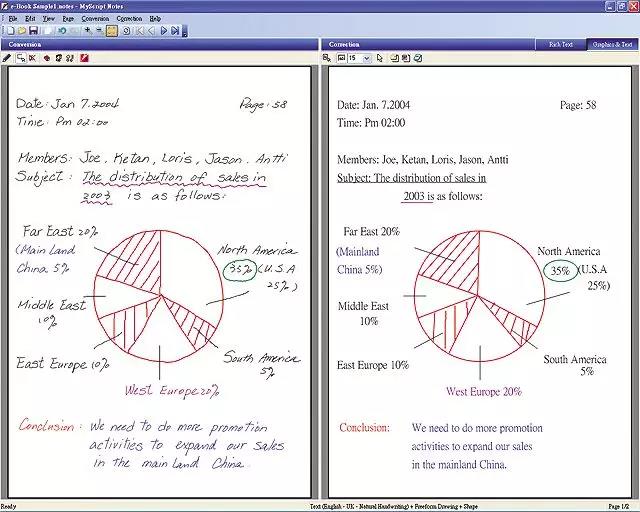 e-Hook Sample1.notes - MyScript Notes
File Edit View Page Conversion Correction Help
Conversion
Date: Jan 7.2004 Page: 58
Time: Pm 02:00
Members: Joe, Ketan, Loris, Jason, Antti
Subject: The distribution of sales in
2003 is as follows:
Far East 20%
(Main Land
China 5%
North America
35% (U.S.A
25%)
Middle East
10%
East Europe 10%
South America
5%
West Europe 20%
Conclusion: We need to do more promotion
activities to expand our sales
in the main Land China.
Correction Rich Text Graphics & Text
15
Date: Jan. 7.2004 Page: 58
Time: Pm 02:00
Members: Joe, Ketan, Loris, Jason, Antti
Subject: The distribution of sales in
2003 is as follows:
Far East 20%
(Mainland
China 5%)
North America
35% (U.S.A
25%)
Middle East
10%
East Europe 10%
South America
5%
West Europe 20%
Conclusion: We need to do more promotion
activities to expand our sales
in the mainland China.
Ready Text (English - UK - Natural Handwriting) + Freeform Drawing + Shape Page 1/2